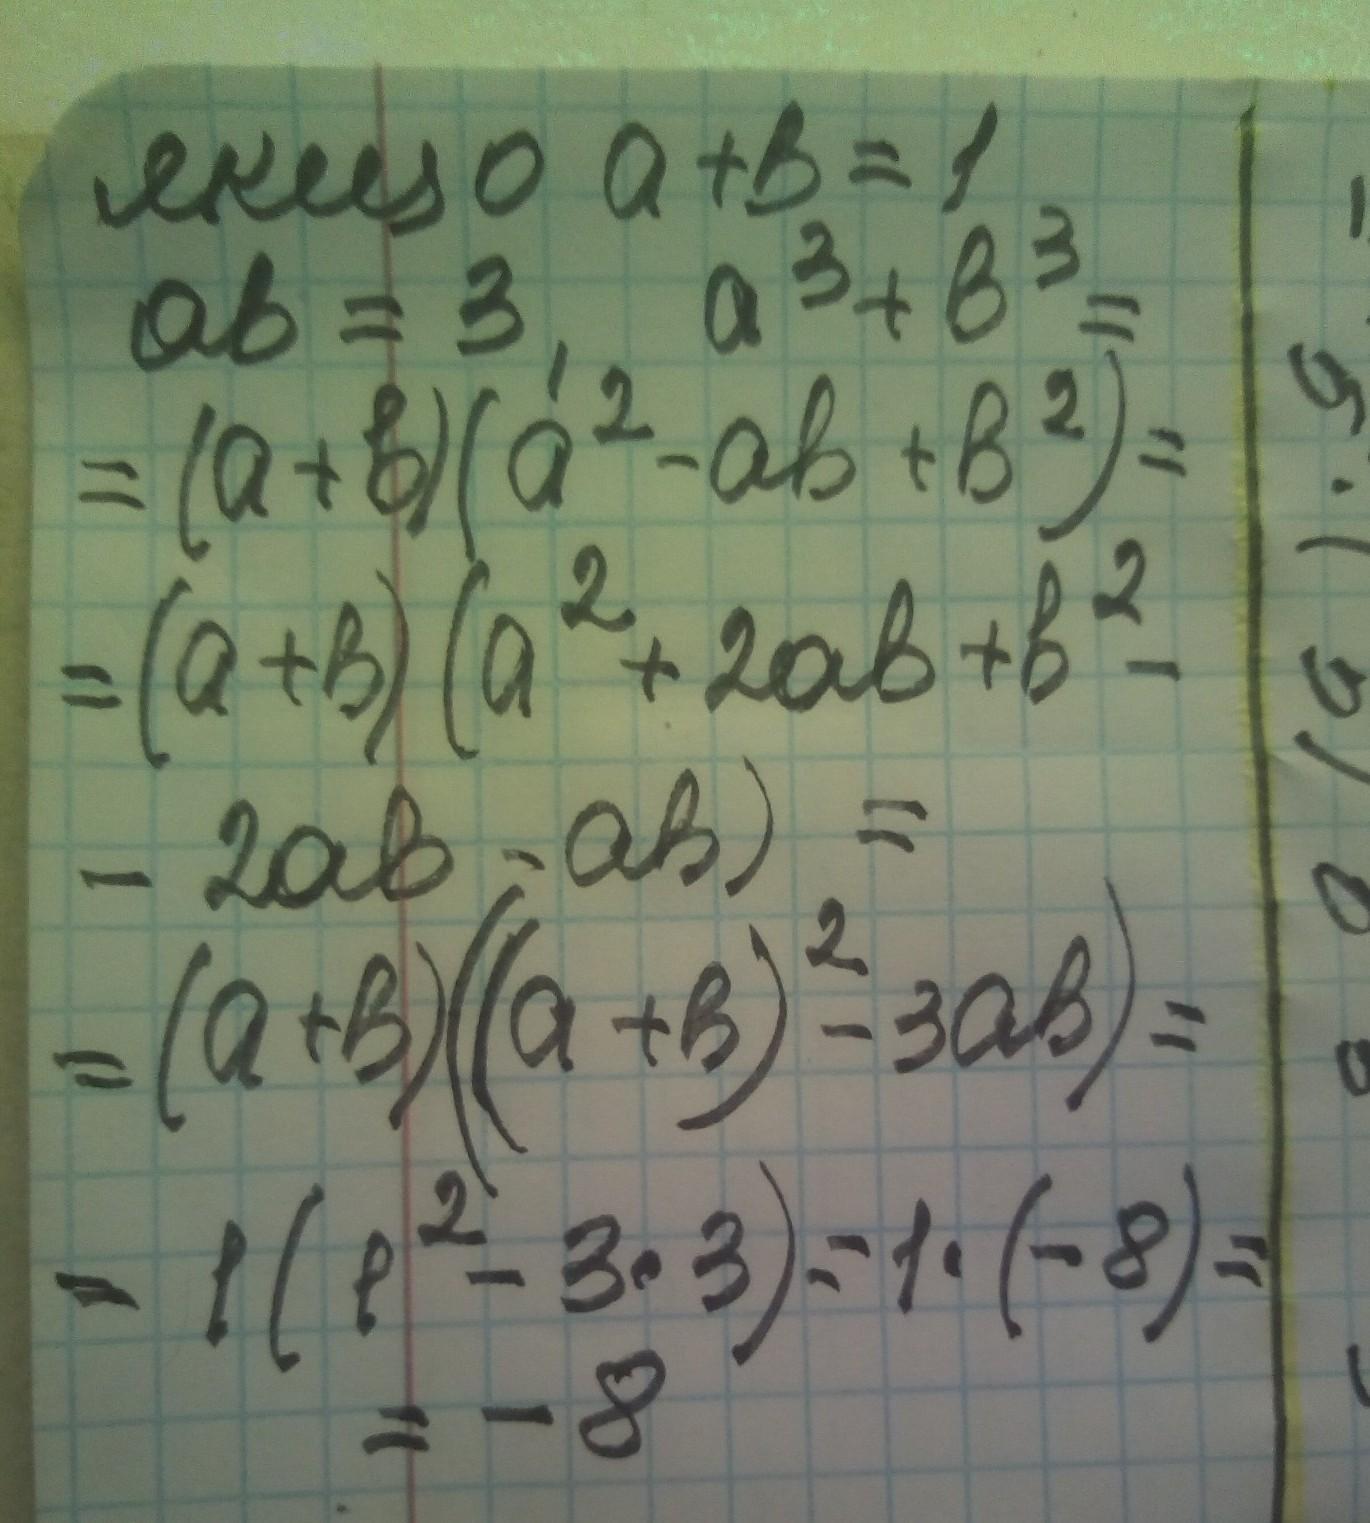 якщо a+b=1
ab = 3, a³+b³=
=(a+b)(a²-ab+b²)=
=(a+b)(a²+2ab+b²-
- 2ab - ab) =
=(a+b)((a+b)²-3ab)=
= 1(1²-3·3)=1·(-8)=
= -8